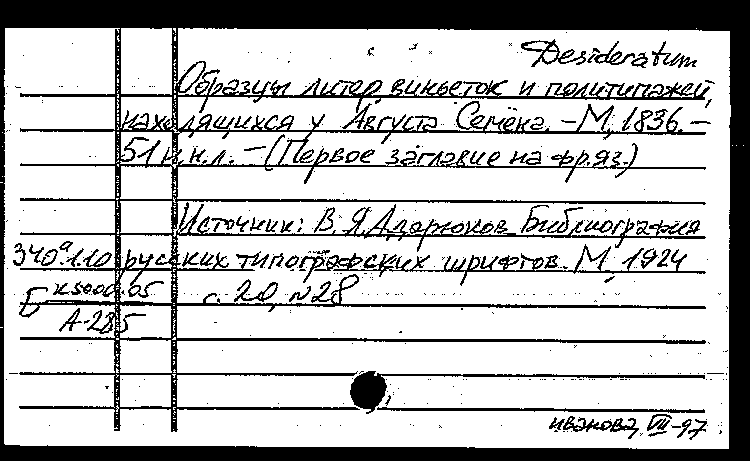 Desideratum
Образцы литер, виньеток и политипажей,
находящихся у Августа Семёна. – М., 1836. –
51 н.н.л. – (Первое заглавие на фр.яз.)
Источник: В.Я. Адарюков Библиография
340а.110 русских типографских шрифтов. М., 1924
с. 20, №28
Б К5000.05
А-285
иванова, VIII-97